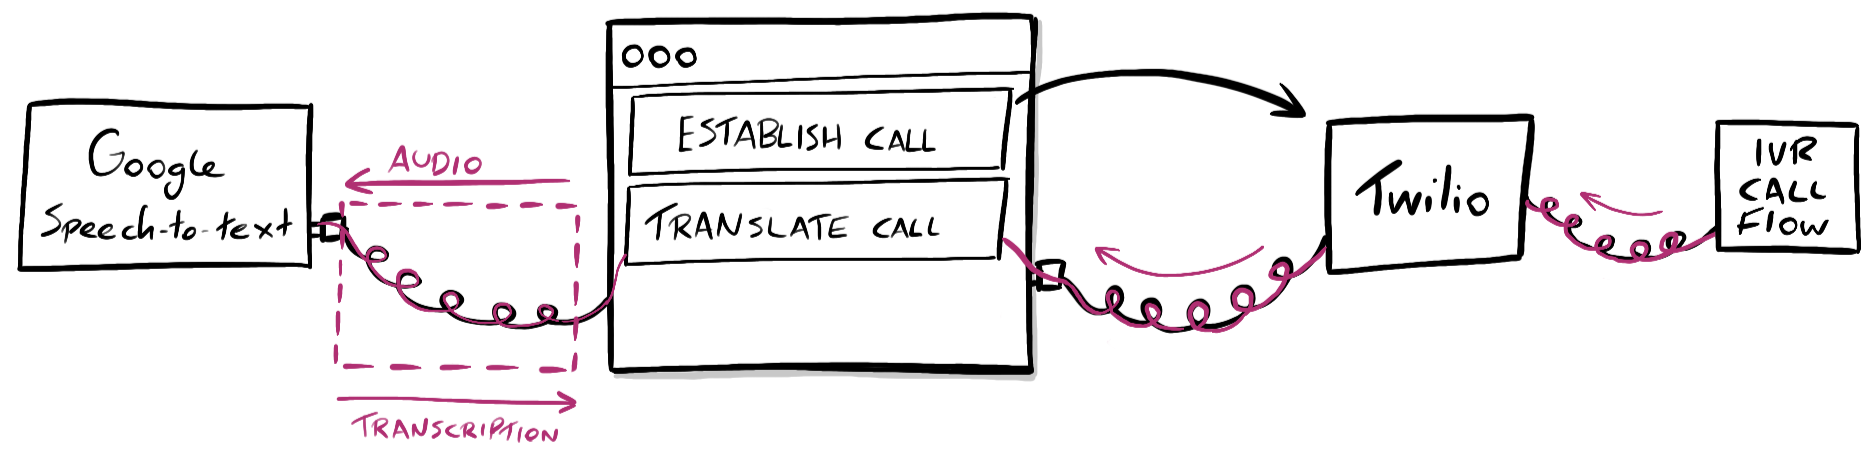 Google
Speech-to-text
AUDIO
TRANSCRIPTION
ESTABLISH CALL
TRANSLATE CALL
Twilio
IVR
CALL
FLOW